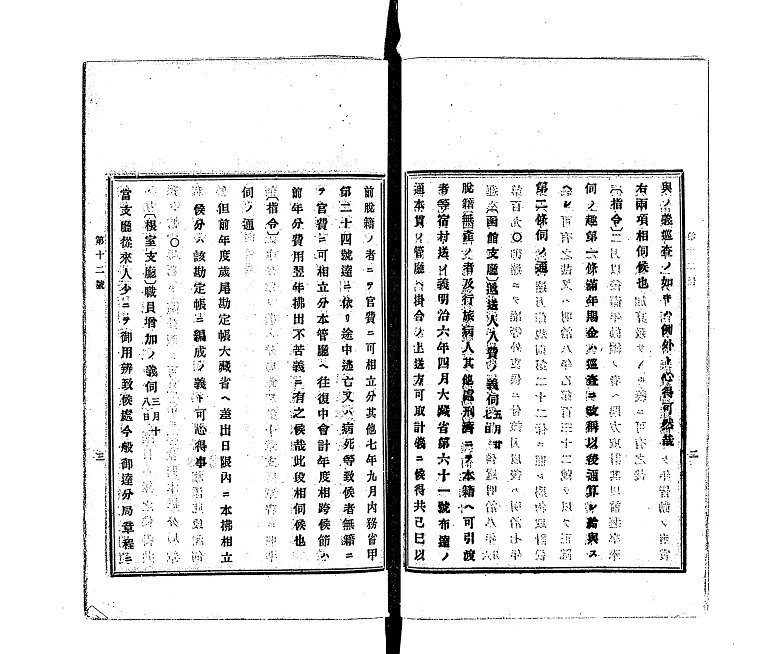 與ノ義巡査ノ如キハ例外ト心得可然哉
右兩項相伺候也
〔指令〕
伺ノ趣第一條滿年賜金ハ巡査ニ
以後通算シ給與ス
第二條伺ノ通
〔函館支廳〕遞送人入費ノ義伺
脫籍無產ノ者及行旅病人其他處刑濟ニテ本籍ヘ可引渡
者等宿村送ノ義明治六年四月大藏省第六十一號布達ノ
通本貫ノ管廳ヘ掛合ノ上送方可取計義ニ候得共已ニ以
前脫籍ノ者ニテ官費ニ可相立分其他七年九月內務省甲
第二十四號達ニ依リ途中逃亡又ハ病死等致候者無籍ニ
テ官費ニ可相立分本管廳ヘ往復中會計年度相跨候節ハ
前年分費用翌年拂出不苦義ニ有之候哉此攻相伺候也
〔指令〕
伺ノ通
但前年度歲尾勘定帳大藏省ヘ差出日限內ニ本拂相立
候分ハ該勘定帳ニ編成ノ義ト可心得事
〔根室支廳〕職員增加ノ義伺 三月十八日
當支廳從來人少ニテ御用辨致候處今般御達分局章程ニ
第十二號
二
三